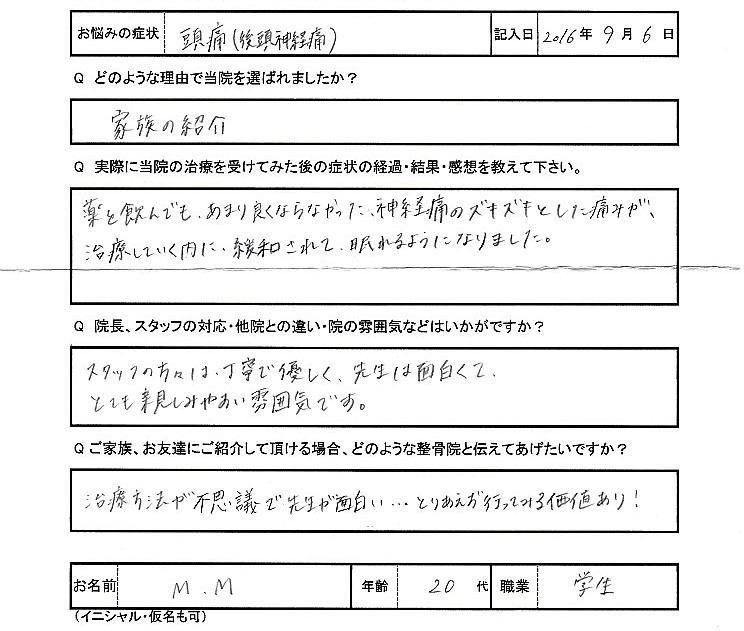 お悩みの症状 頭痛(後頭神経痛) 記入日 2016年 9月 6日
Q どのような理由で当院を選ばれましたか？
家族の紹介
Q 実際に当院の治療を受けてみた後の症状の経過・結果・感想を教えて下さい。
薬を飲んでも、あまり良くならなかった、神経痛のズキズキとした痛みが、
治療していく内に、緩和されて、眠れるようになりました。
Q 院長、スタッフの対応・他院との違い・院の雰囲気などはいかがですか？
スタッフの方々は、丁寧で優しく、先生は面白くて、
とても親しみやすい雰囲気です。
Q ご家族、お友達にご紹介して頂ける場合、どのような整骨院と伝えてあげたいですか？
治療方法が不思議で先生が面白い…とりあえず行ってみる価値あり！
お名前 M.M 年齢 20 代 職業 学生
（イニシャル・仮名も可）